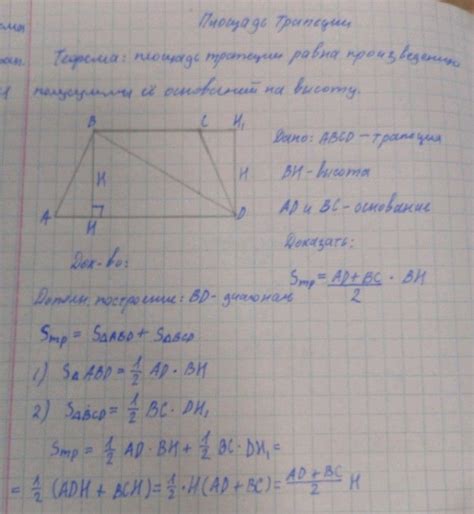 Площадь трапеции
Теорема: площадь трапеции равна произведению
полусуммы её оснований на высоту.
B C H₁
Дано: ABCD – трапеция
H H
BH – высота
A H D
AD и BC – основание
Доказать:
Sтр = AD + BC / 2 · BH
Док-во:
Дополн. построение: BD – диагональ
Sтр = S△ABD + S△BCD
1) S△ABD = 1/2 AD · BH
2) S△BCD = 1/2 BC · DH₁
Sтр = 1/2 AD · BH + 1/2 BC · DH₁ =
= 1/2 (ADH + BCH) = 1/2 · H (AD + BC) = AD + BC / 2 H